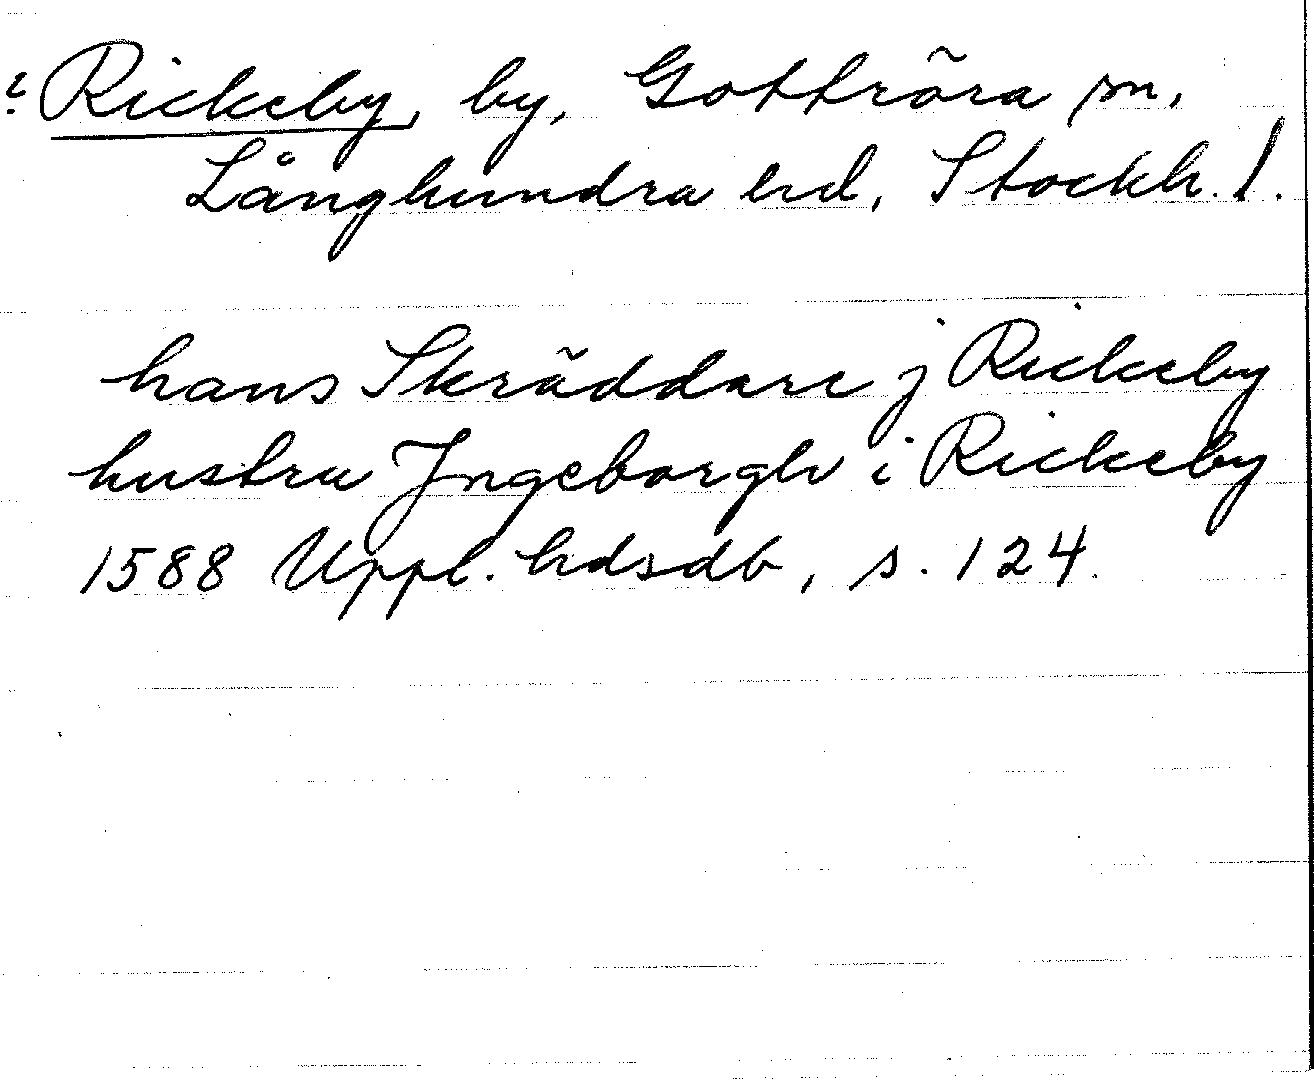 ? Rickeby, by, Gottröra sn,
Långhundra hd, Stockh. l.
hans Skräddare j Rickeby
hustru Jngeborgh i Rickeby
1588 Uppl. hdsdb, s. 124.